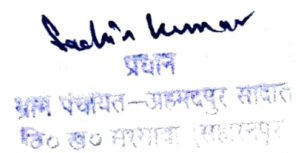 Sachin Kumar
प्रधान
ग्राम पंचायत—अहमदपुर सादात
वि० ख० सरसावा (सहारनपुर